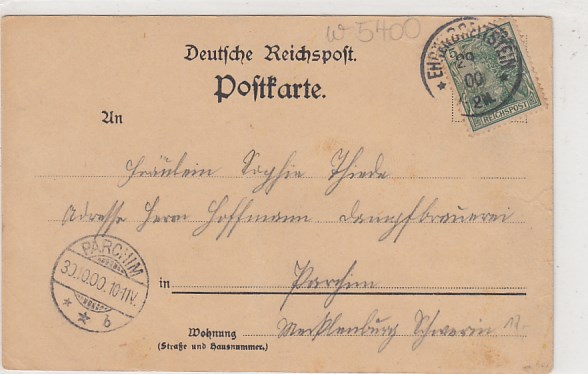 w 5400
Deutsche Reichspost.
Postkarte.
EHRENBREITSTEIN
29
00
REICHSPOST
An
Fräulein Sophie Thiede
Adresse Herrn Hoffmann Dampfbrauerei
PARCHIM
30.10.00.10-11V.
* * b
in Parchim
Wohnung Mecklenburg Schwerin 12.-
(Straße und Hausnummer.)